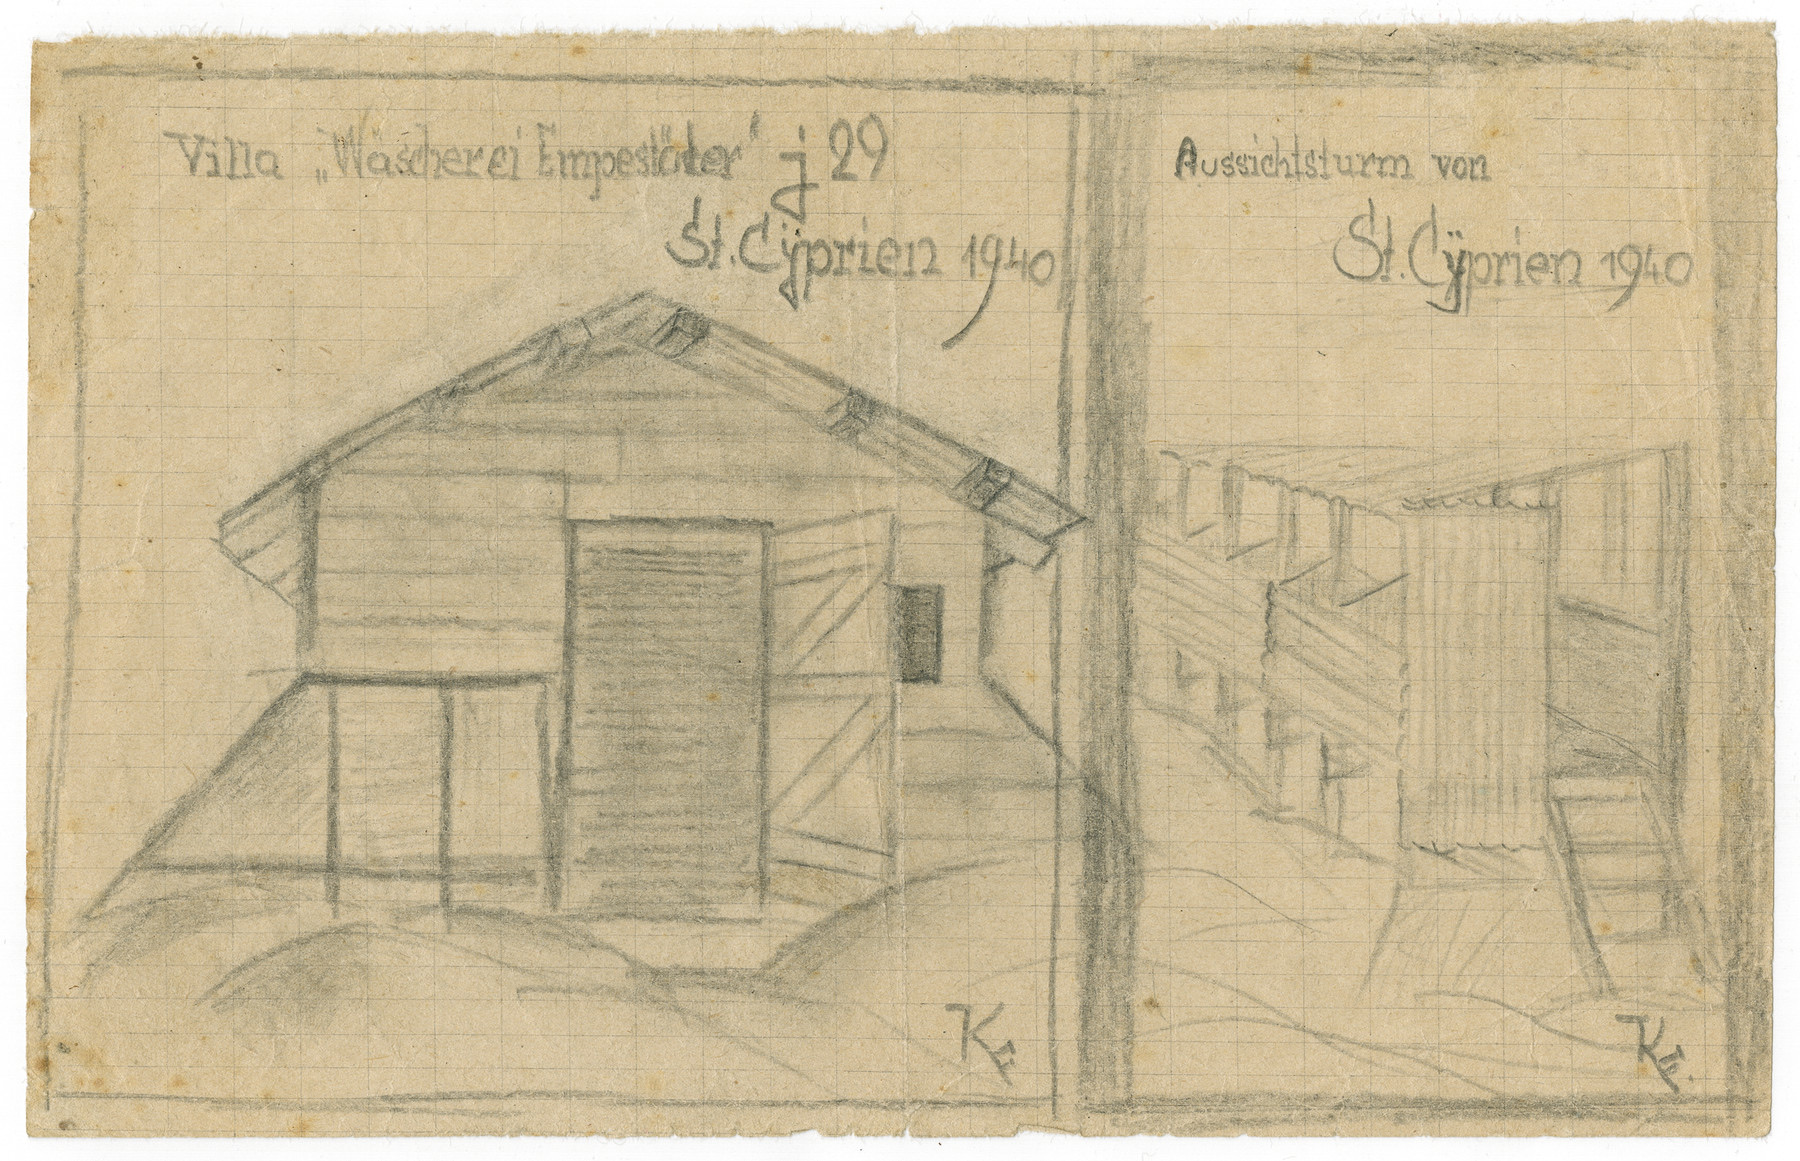 Villa „Wäscherei Empestäter“ j 29
St. Cÿprien 1940
Aussichtsturm von
St. Cÿprien 1940